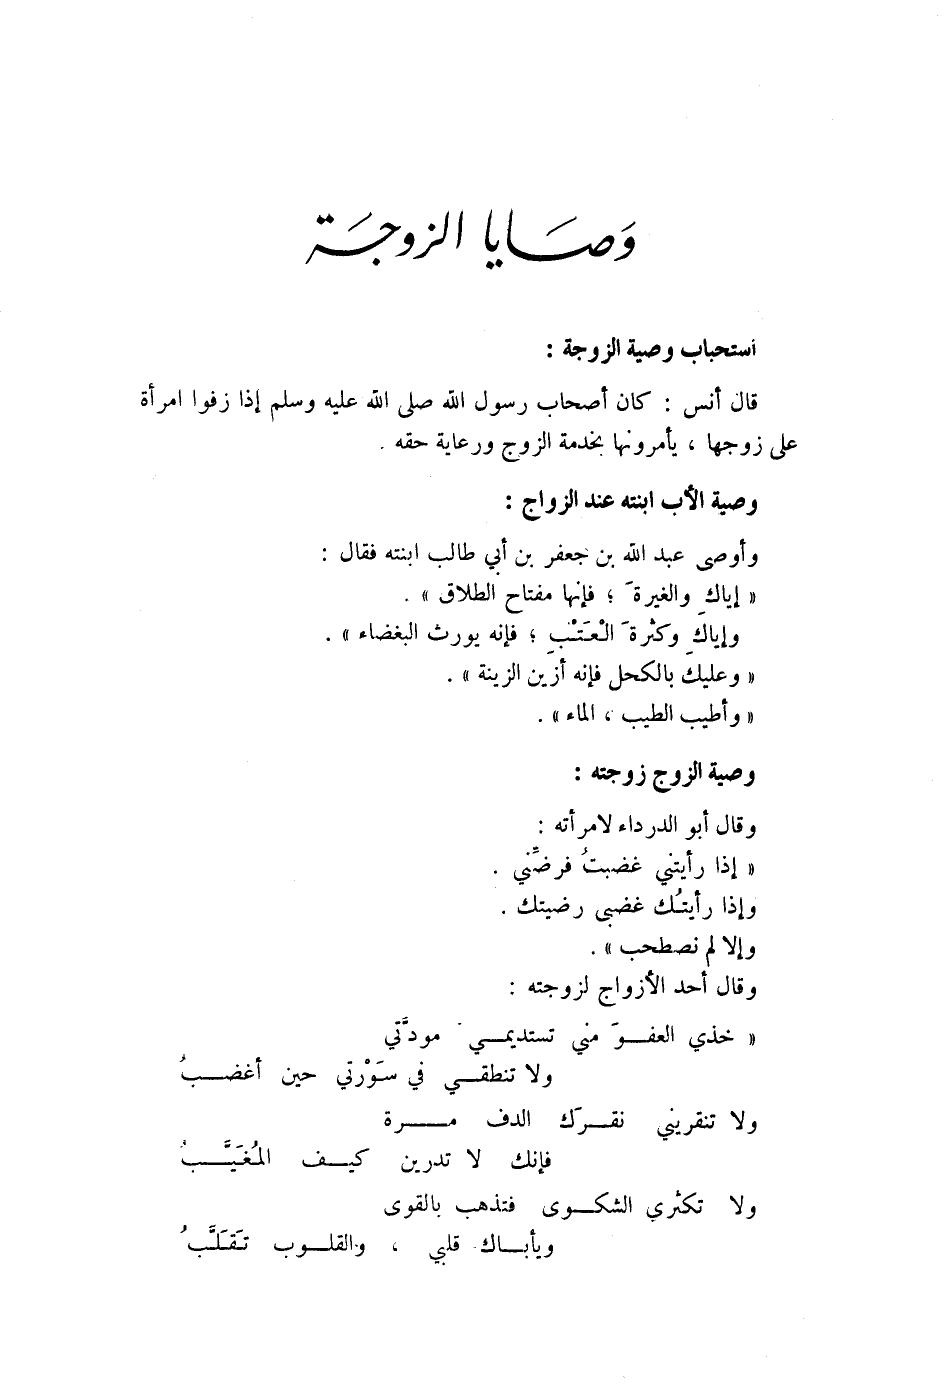 وَصَايا الزوجَة
استحباب وصية الزوجة :
قال أنس : كان أصحاب رسول الله صلى الله عليه وسلم إذا زفوا امرأة
على زوجها ، يأمرونها بخدمة الزوج ورعاية حقه .
وصية الأب ابنته عند الزواج :
وأوصى عبد الله بن جعفر بن أبي طالب ابنته فقال :
« إياكِ والغيرةَ ؛ فإنها مفتاح الطلاق » .
وإياكِ وكثرةَ الْعَتْبِ ؛ فإنه يورث البغضاء » .
« وعليك بالكحل فإنه أزين الزينة » .
« وأطيب الطيب ، الماء » .
وصية الزوج زوجته :
وقال أبو الدرداء لامرأته :
« إذا رأيتني غضبتُ فرضِّني .
وإذا رأيتُك غضبى رضيتك .
وإلا لم نصطحب » .
وقال أحد الأزواج لزوجته :
« خذي العفـوَ مني تستديمـي مودَّتي
ولا تنطقـي في سَوْرتي حين أغضـبُ
ولا تنقريني نقـرَك الدف مـرة
فإنك لا تدرين كيـف المُغَيَّـبُ
ولا تكثري الشكـوى فتذهب بالقوى
ويأبـاك قلبي ، والقلـوب تَقَلَّبُ